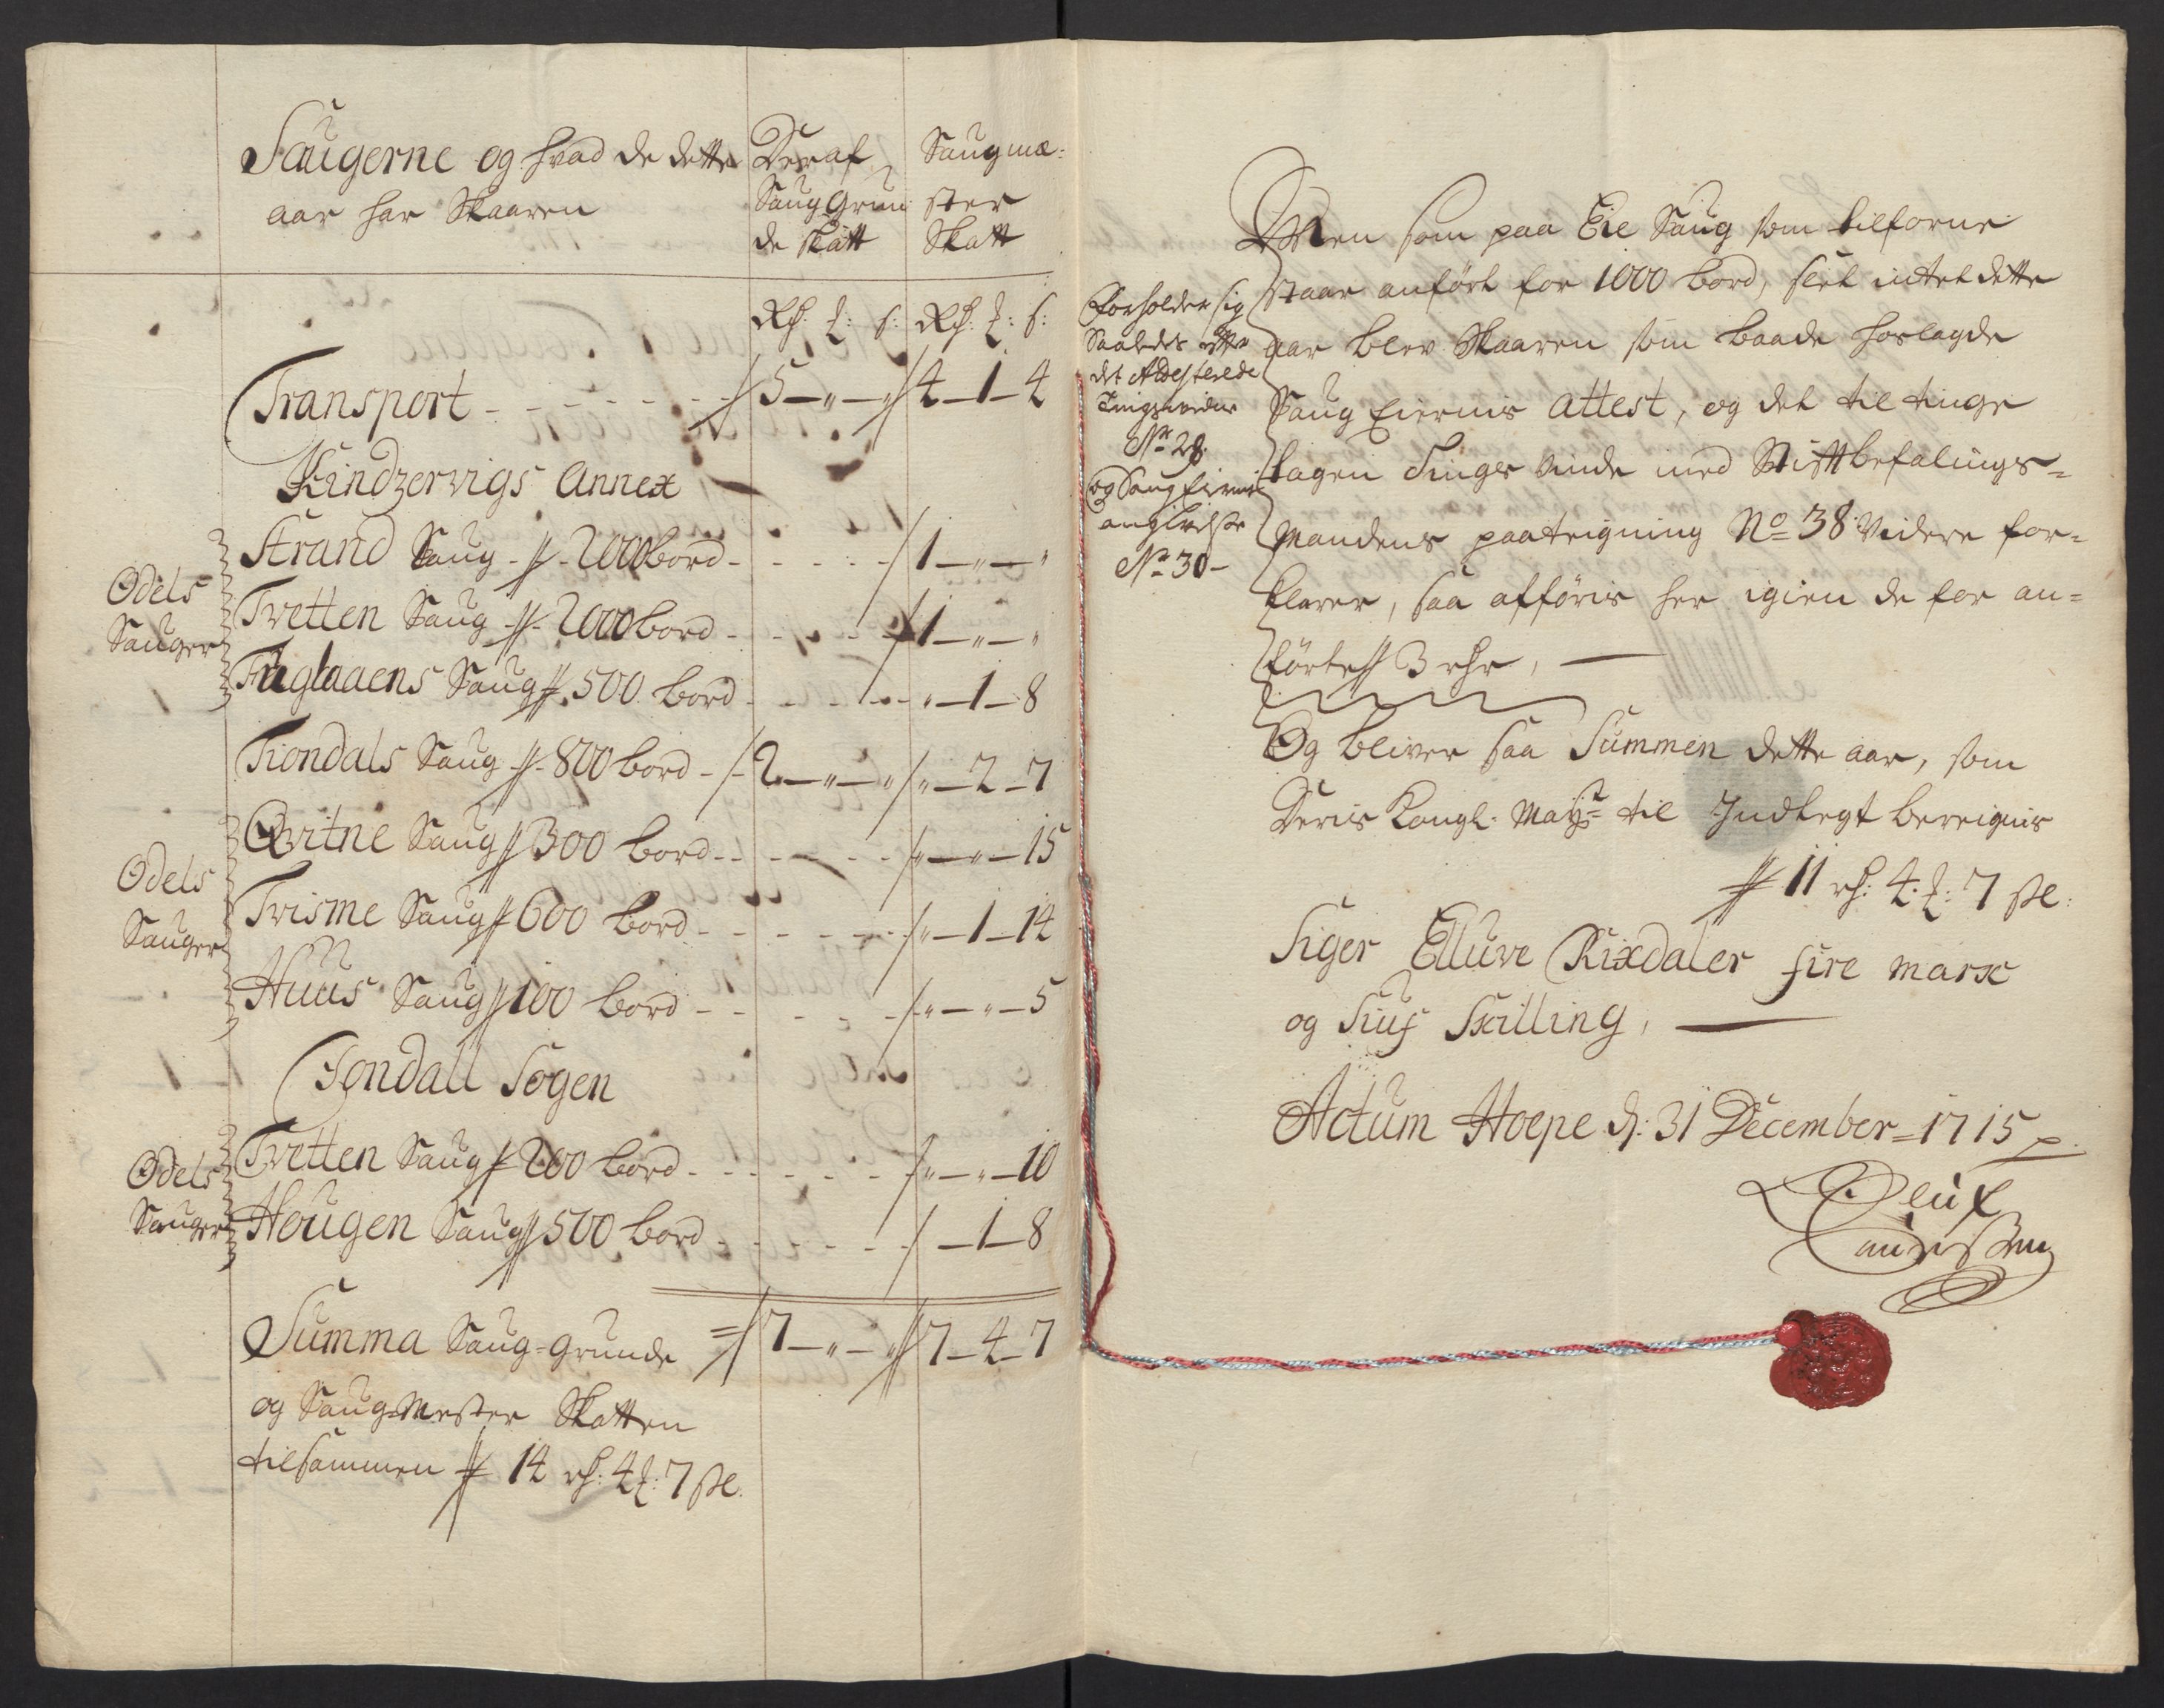 Saugerne og hvad de dette
aar har Skaaren
Deraf
Saug Grun
de skatt
Saugme-
ster
Skatt
Rd: ʒ: s: Rd: ʒ: s:
Transport - - - 5 — " — " 4 — 1 — 4
Kindzervigs Annex
Odels
Sauger
Strand Saug - 2000 bord - - - 1 — " — "
Tvetten Saug - 2000 bord - - - 1 — " — "
Fuglaaens Saug 500 bord - - - " — 1 — 8
Tiondals Saug - 800 bord - 2 — " — " " — 2 — 7
Odels
Sauger
Qvitne Saug 300 bord - - - " — " — 15
Tvisme Saug 600 bord - - - " — 1 — 14
Huus Saug 100 bord - - - " — " — 5
Jondall Sogen
Odels
Sauger
Tvetten Saug 200 bord - - - " — " — 10
Hougen Saug 500 bord - - - — 1 — 8
Summa Saug-Grunde = 7 — " — " 7 — 4 — 7
og Saug-Mester Skatten
tilsammen 14 rd: 4 ʒ: 7 sk.
Forholder sig
Saaledes efter
det Attesterede
Tingsvidne
No 28.
og Saug Eiernis
angivelse
No 30 -
Men som paa Eie Saug som tilforne
staar anført for 1000 bord, slet intet dette
aar blev Skaaren som baade hoslagde
Saug Eiernis attest, og det til tinge
tagen Tings vinde med Stiftbefalings-
Mandens paategning No 38 videre for-
klarer, saa afføris her igien de for an-
førte 3 rdr, —
Og bliver saa Summen dette aar, som
Deris Kongl. May:ts til Indtegt bereignis
11 rd: 4 ʒ: 7 sk.
Siger Elluve Rixdaler fire marx
og Siuf Skilling, —
Actum Hoepe d: 31 December = 1715